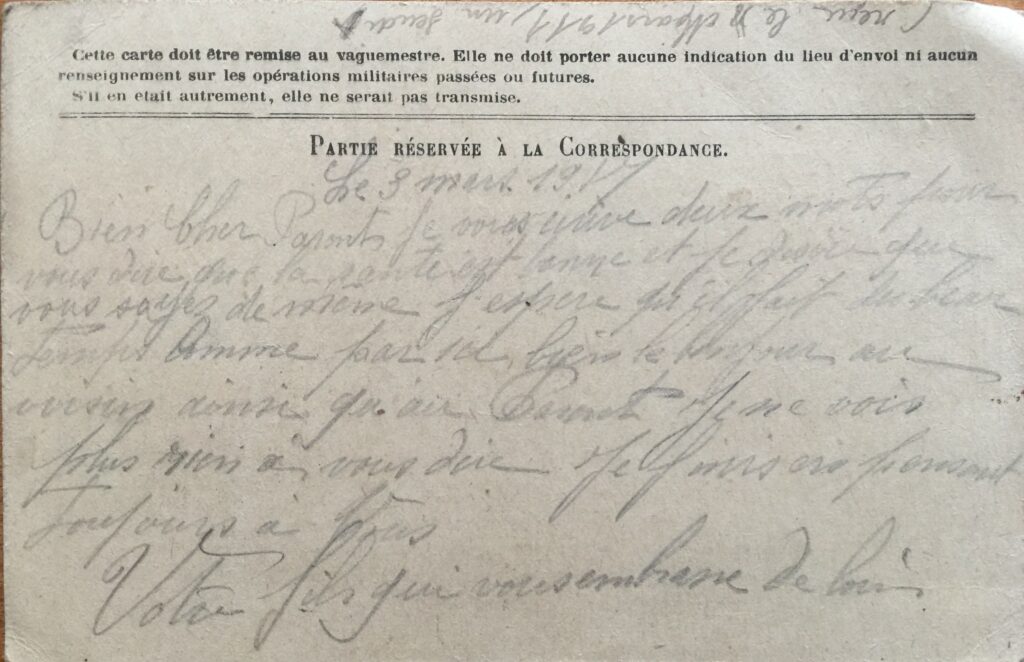 (reçu le 8 Mars 1917, un jeudi)
Cette carte doit être remise au vaguemestre. Elle ne doit porter aucune indication du lieu d'envoi ni aucun
renseignement sur les opérations militaires passées ou futures.
S'il en etait autrement, elle ne serait pas transmise.
PARTIE RÉSERVÉE À LA CORRESPONDANCE.
Le 3 mars 1917
Bien Cher Parents Je vous écrive deux mots pour
vous dire que la santé est bonne et je désire que
vous soyez de même J'espère qu'il fait du beau
temps comme par ici, bien le bonjour au
voisin ainsi qu'au Parent Je ne vois
plus rien à vous dire Je finis en pensant
toujours à Vous
Votre fils qui vous embrasse de loin